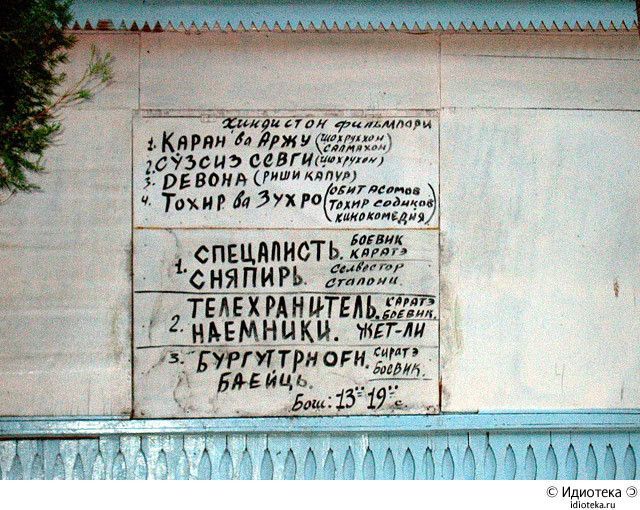 Хиндистон фильмлари
1. КАРАН ва АРЖУ (ШОХРУХХОН)
САЛМАХОН
2. СЎЗСИЗ СЕВГИ (ШОХРУХОН)
3. DЕВОНА (РИШИ КАПУР)
4. ТОХИР ва ЗУХРО (ОБИТ АСОМОВ
ТОХИР СОДИКОВ
КИНОКОМЕДИЯ)
1. СПЕЦАЛИСТЬ. БОЕВИК
КАРАТЭ
СНЯПИРЬ. Селвестор
Сталони.
2. ТЕЛЕХРАНИТЕЛЬ. КАРАТЭ
БОЕВИК.
НАЕМНИКИ. ЖЕТ-ЛИ
3. БУРГУТТРНОГИ. СИРАТЭ
БОЕВИК.
БАЕЙЦЬ.
Бош: 13 19 с
© Идиотека
idioteka.ru